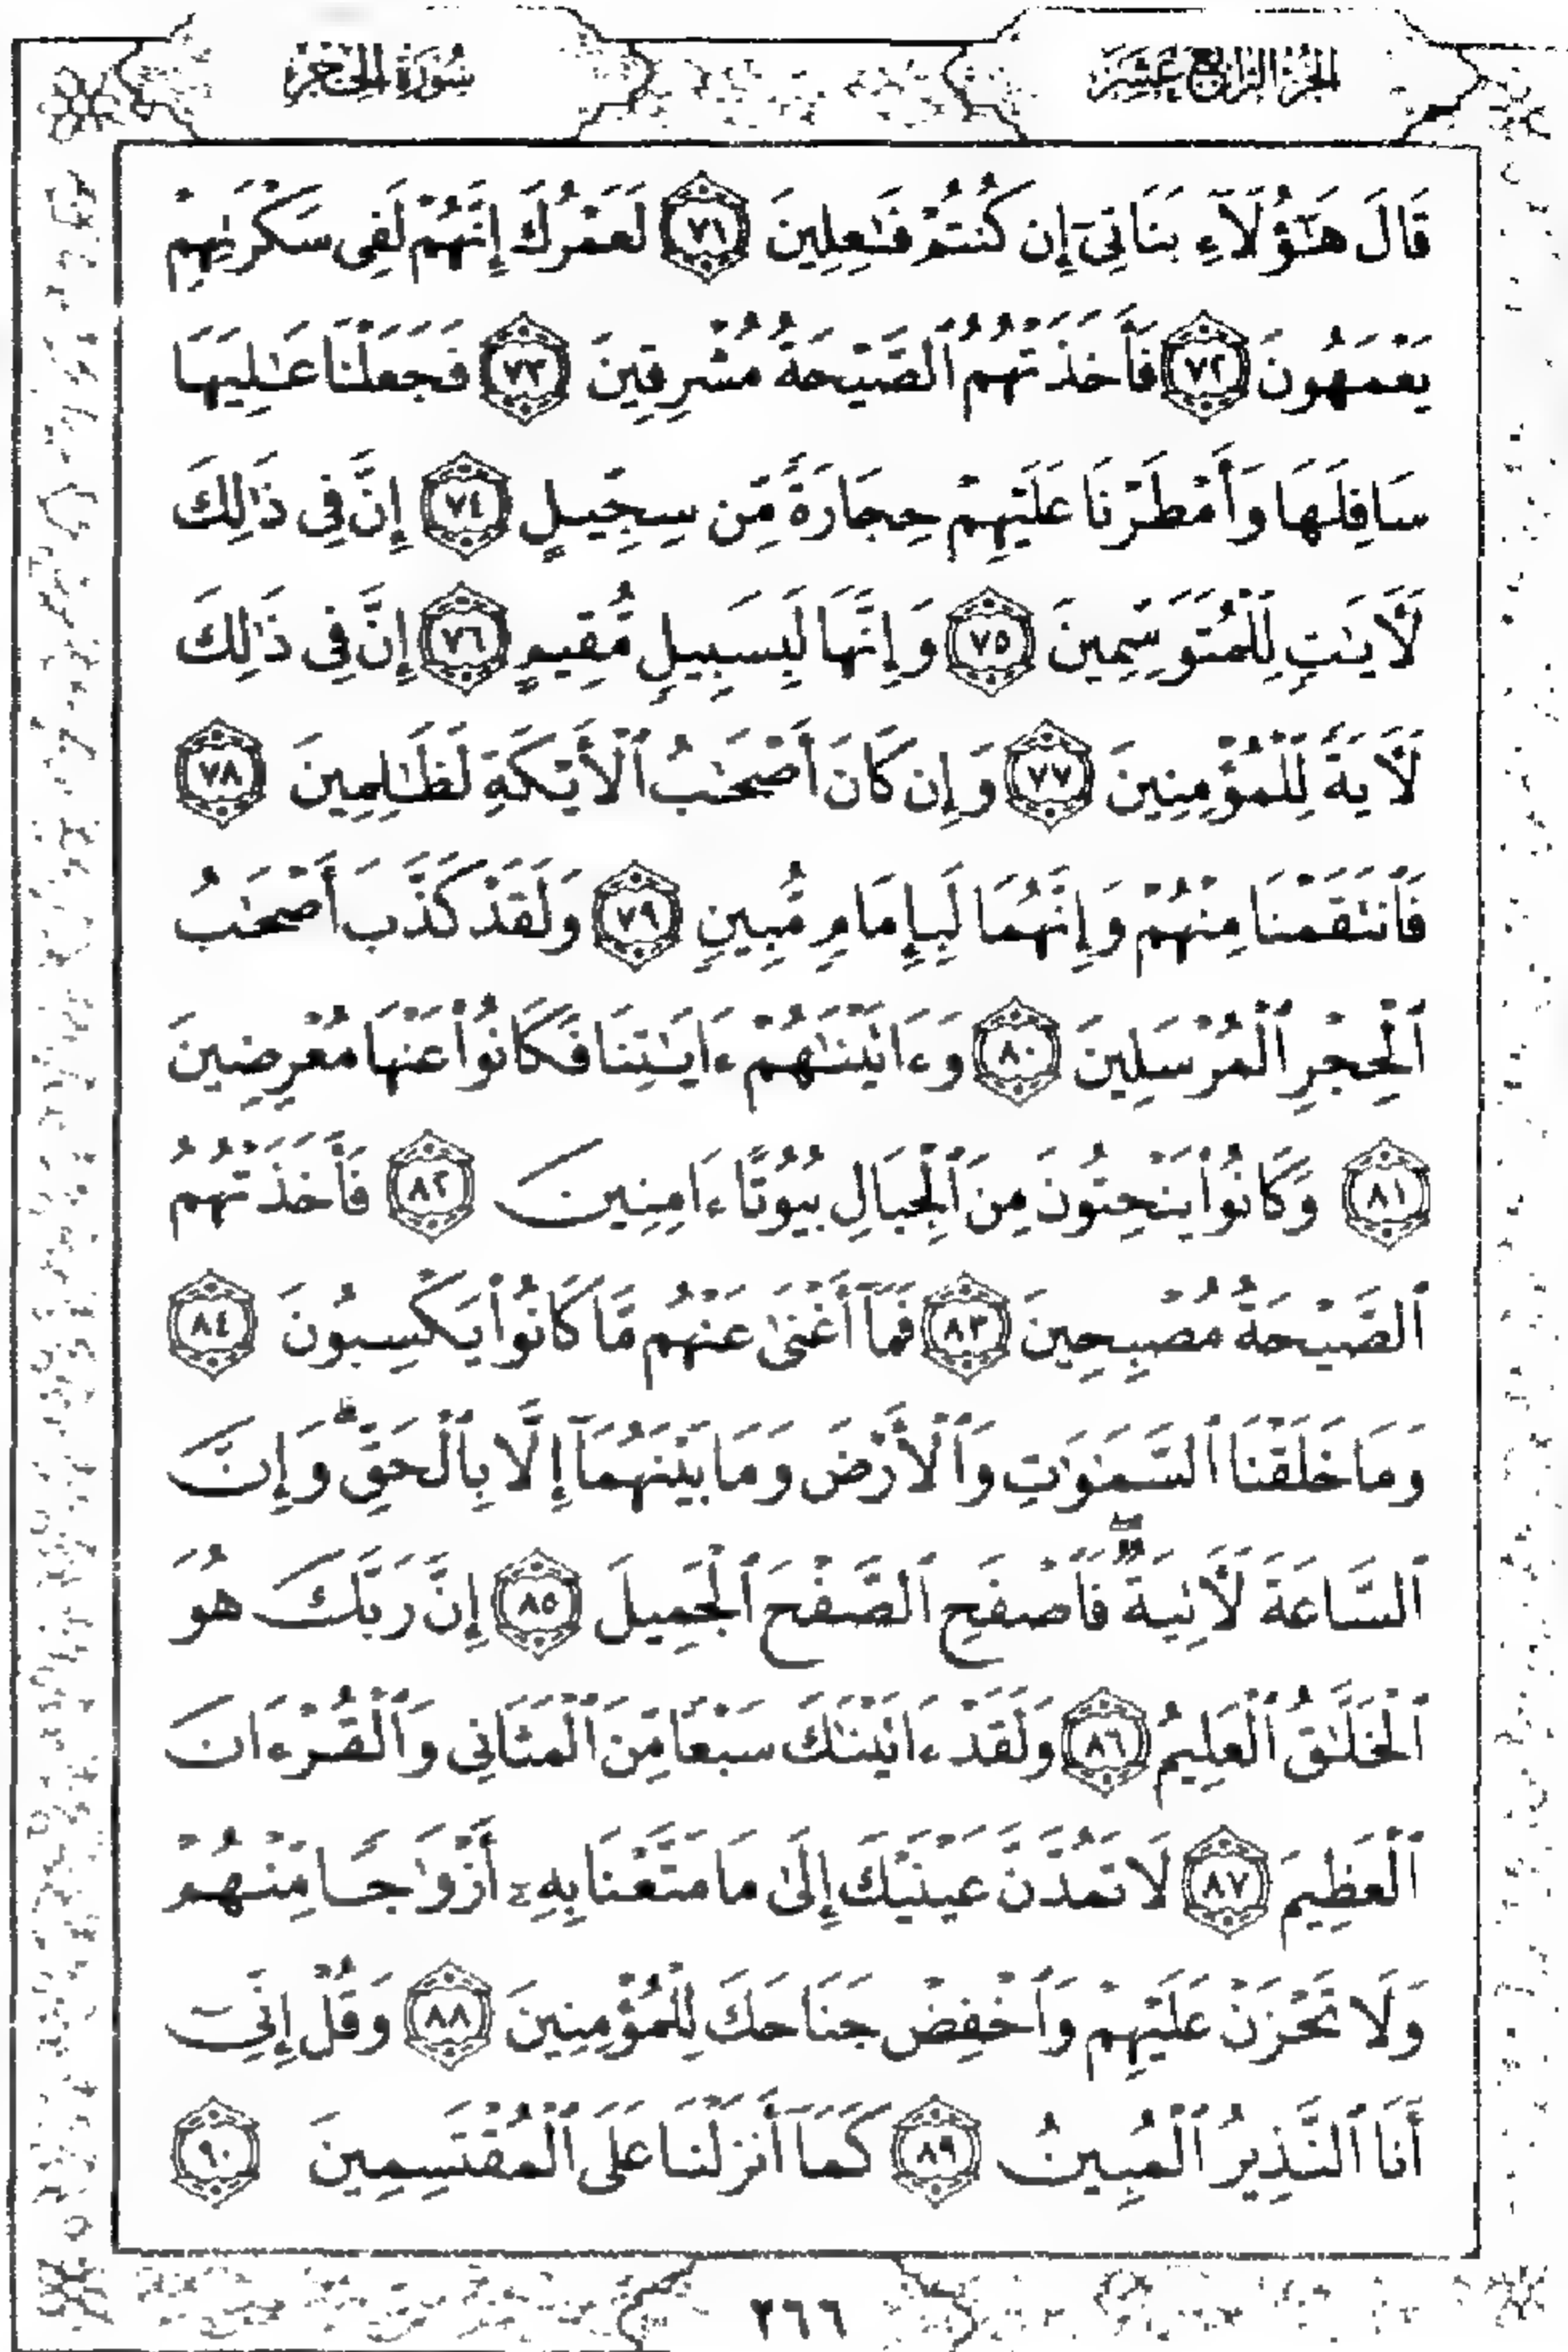 الجزء الرابع عشر
سورة الحجر
قَالَ هَـٰٓؤُلَآءِ بَنَاتِىٓ إِن كُنتُمْ فَـٰعِلِينَ ٧١ لَعَمْرُكَ إِنَّهُمْ لَفِى سَكْرَتِهِمْ
يَعْمَهُونَ ٧٢ فَأَخَذَتْهُمُ ٱلصَّيْحَةُ مُشْرِقِينَ ٧٣ فَجَعَلْنَا عَـٰلِيَهَا
سَافِلَهَا وَأَمْطَرْنَا عَلَيْهِمْ حِجَارَةً مِّن سِجِّيلٍ ٧٤ إِنَّ فِى ذَٰلِكَ
لَـَٔايَـٰتٍ لِّلْمُتَوَسِّمِينَ ٧٥ وَإِنَّهَا لَبِسَبِيلٍ مُّقِيمٍ ٧٦ إِنَّ فِى ذَٰلِكَ
لَـَٔايَةً لِّلْمُؤْمِنِينَ ٧٧ وَإِن كَانَ أَصْحَـٰبُ ٱلْأَيْكَةِ لَظَـٰلِمِينَ ٧٨
فَٱنتَقَمْنَا مِنْهُمْ وَإِنَّهُمَا لَبِإِمَامٍ مُّبِينٍ ٧٩ وَلَقَدْ كَذَّبَ أَصْحَـٰبُ
ٱلْحِجْرِ ٱلْمُرْسَلِينَ ٨٠ وَءَاتَيْنَـٰهُمْ ءَايَـٰتِنَا فَكَانُوا۟ عَنْهَا مُعْرِضِينَ
٨١ وَكَانُوا۟ يَنْحِتُونَ مِنَ ٱلْجِبَالِ بُيُوتًا ءَامِنِينَ ٨٢ فَأَخَذَتْهُمُ
ٱلصَّيْحَةُ مُصْبِحِينَ ٨٣ فَمَآ أَغْنَىٰ عَنْهُم مَّا كَانُوا۟ يَكْسِبُونَ ٨٤
وَمَا خَلَقْنَا ٱلسَّمَـٰوَٰتِ وَٱلْأَرْضَ وَمَا بَيْنَهُمَآ إِلَّا بِٱلْحَقِّ ۗ وَإِنَّ
ٱلسَّاعَةَ لَـَٔاتِيَةٌ ۖ فَٱصْفَحِ ٱلصَّفْحَ ٱلْجَمِيلَ ٨٥ إِنَّ رَبَّكَ هُوَ
ٱلْخَلَّـٰقُ ٱلْعَلِيمُ ٨٦ وَلَقَدْ ءَاتَيْنَـٰكَ سَبْعًا مِّنَ ٱلْمَثَانِى وَٱلْقُرْءَانَ
ٱلْعَظِيمَ ٨٧ لَا تَمُدَّنَّ عَيْنَيْكَ إِلَىٰ مَا مَتَّعْنَا بِهِۦٓ أَزْوَٰجًا مِّنْهُمْ
وَلَا تَحْزَنْ عَلَيْهِمْ وَٱخْفِضْ جَنَاحَكَ لِلْمُؤْمِنِينَ ٨٨ وَقُلْ إِنِّىٓ
أَنَا ٱلنَّذِيرُ ٱلْمُبِينُ ٨٩ كَمَآ أَنزَلْنَا عَلَى ٱلْمُقْتَسِمِينَ ٩٠
٢٦٦